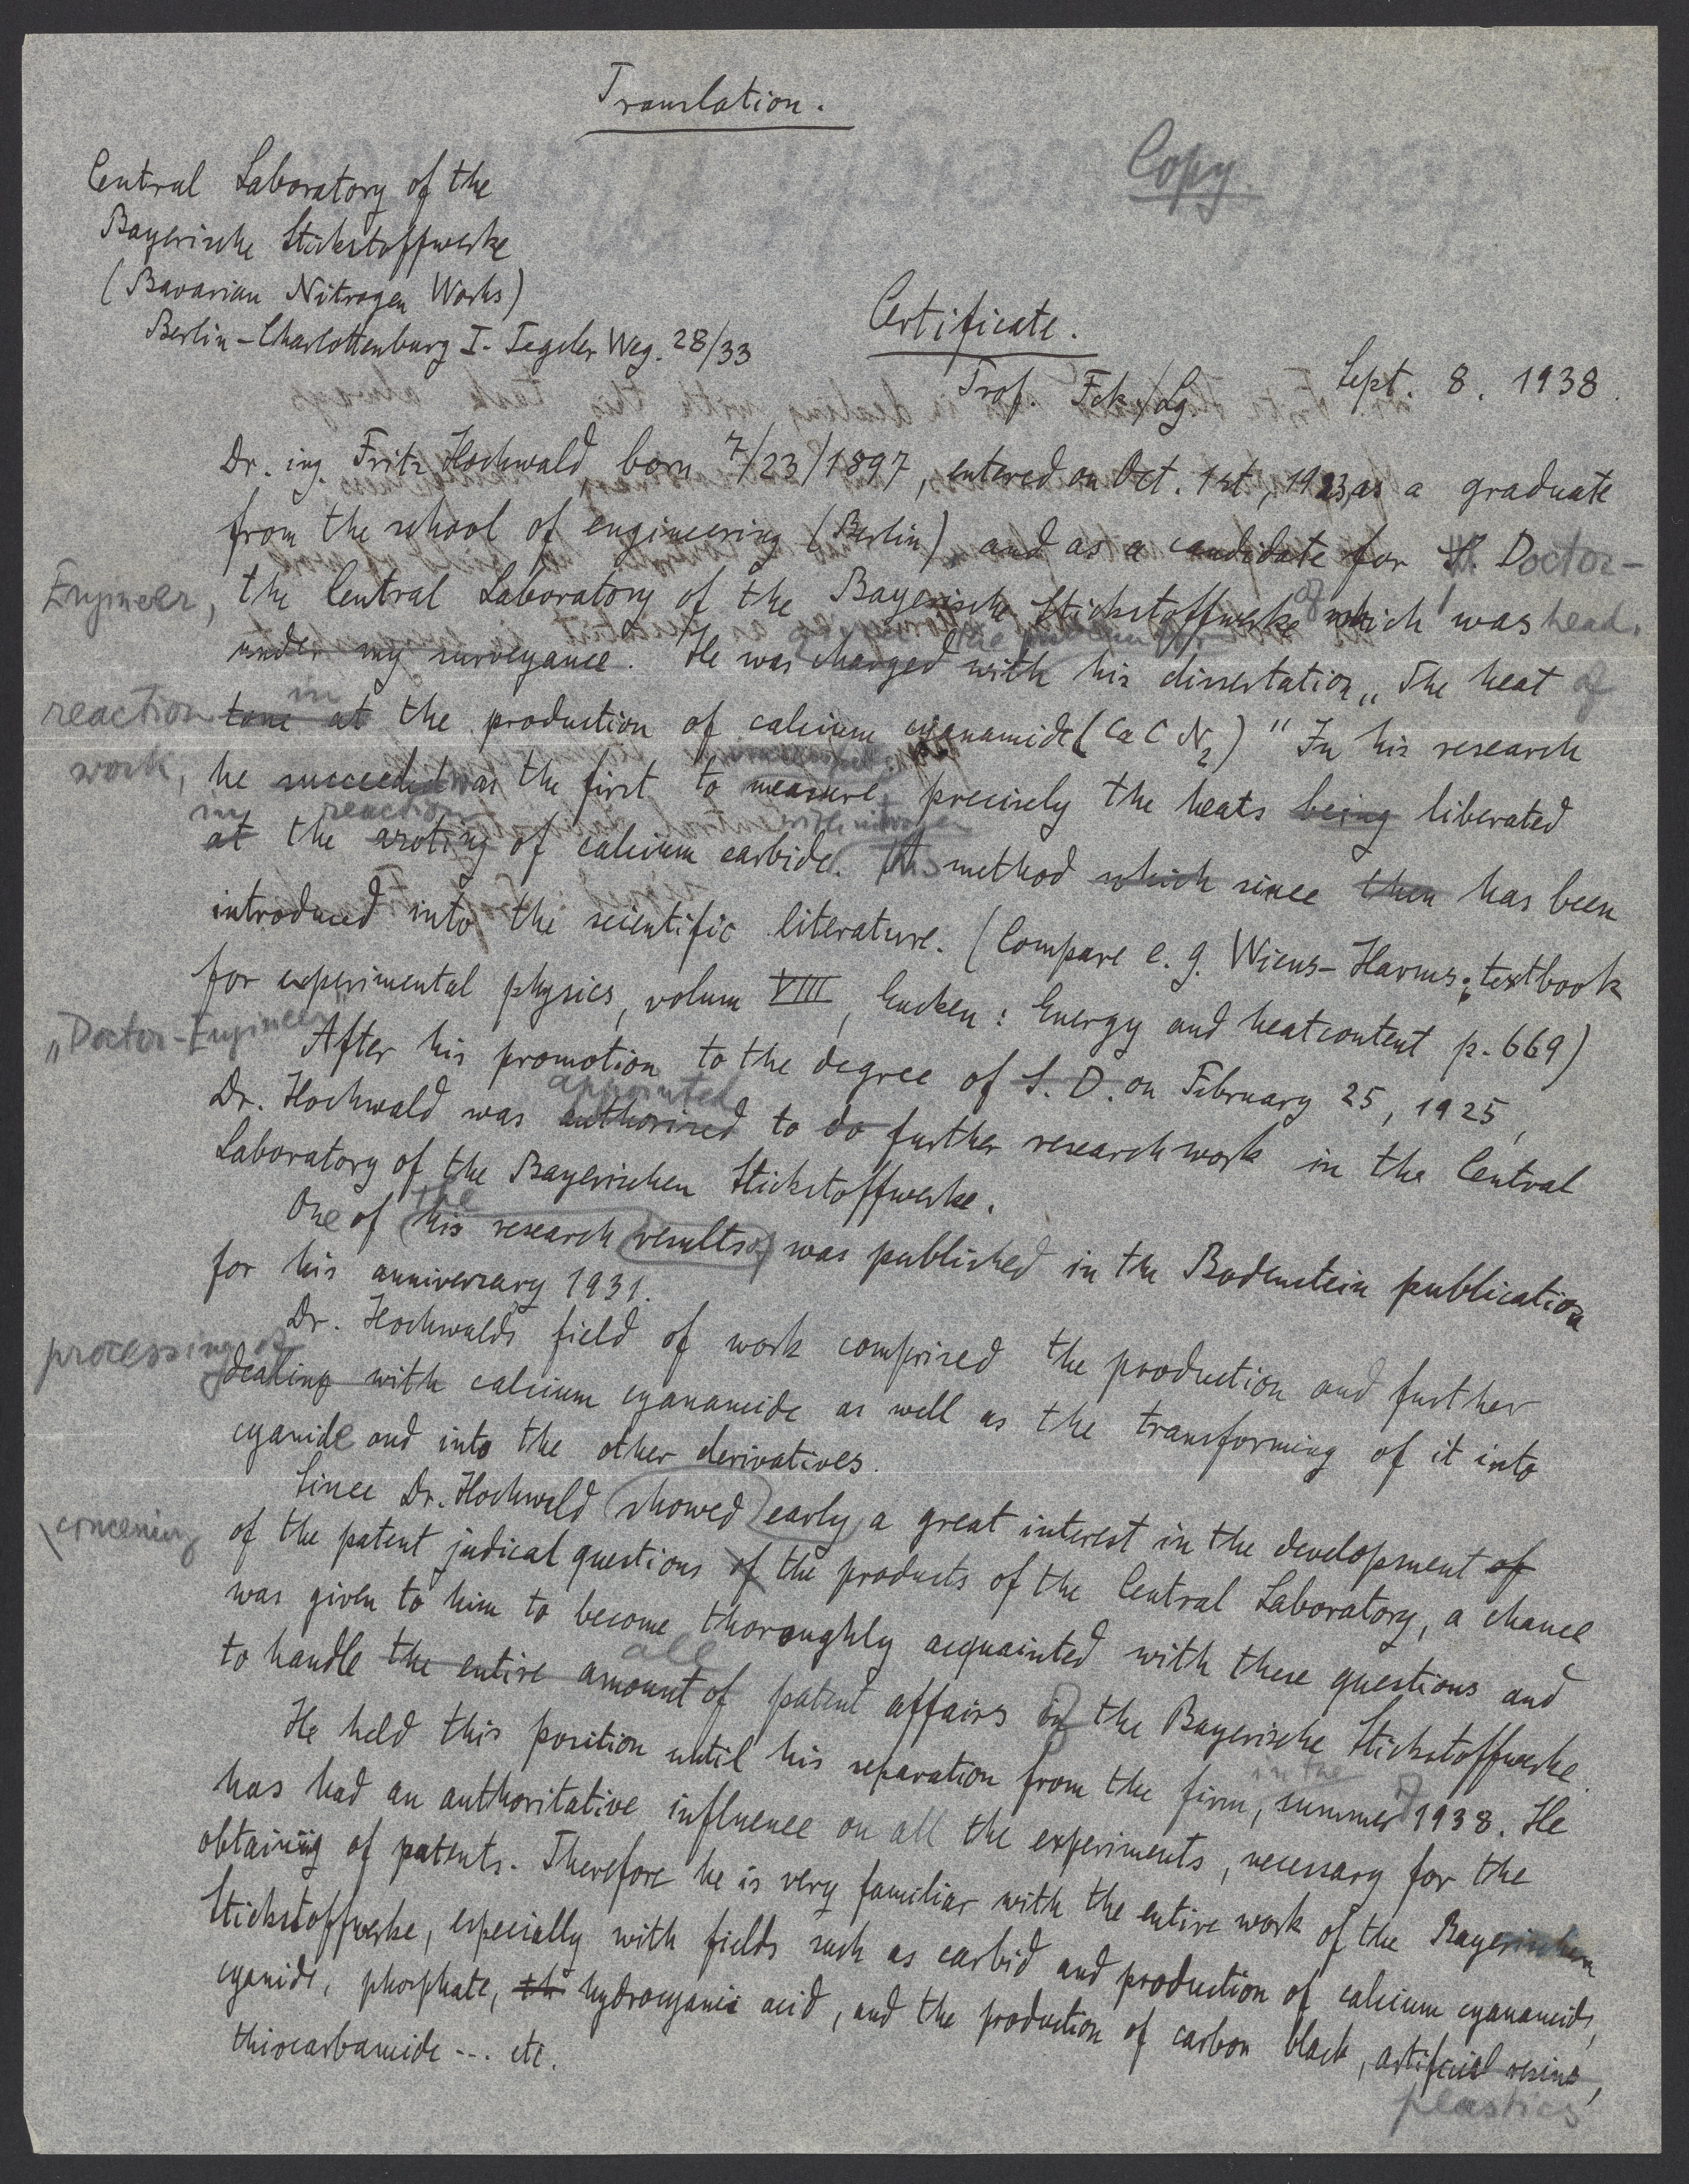 Translation.
Copy.
Central Laboratory of the
Bayerische Stickstoffwerke
(Bavarian Nitrogen Works)
Berlin-Charlottenburg I. Tegeler Weg. 28/33
Certificate.
Sept. 8. 1938.
Prof. Fck/Lg.
Dr. ing. Fritz Hochwald, born 7/23/1897, entered on Oct. 1st, 1923, as a graduate
from the school of engineering (Berlin) and as a candidate for Doctor-
Engineer, the Central Laboratory of the Bayerische Stickstoffwerke of which I was head.
under my surveyance. He was charged with his dissertation „The heat of
reaction tone at in the production of calcium cyanamide (CaCN2)" In his research
work, he succeeded was the first to measure precisely the heats being liberated
at the azoting reaction of calcium carbide with nitrogen. This method which since then has been
introduced into the scientific literature. (Compare e. g. Wiens-Harms: textbook
for experimental physics, volum VIII, Eucken: Energy and heatcontent p. 669)
„Doctor-Engineer"
After his promotion to the degree of S. D. on February 25, 1925,
appointed
Dr. Hochwald was authorized to do further research work in the Central
Laboratory of the Bayerischen Stickstoffwerke.
the
One of his research results of was published in the Bodenstein publication
for his anniversary 1931.
Dr. Hochwald's field of work comprised the production and further
processing of dealing with calcium cyanamide as well as the transforming of it into
cyanide and into the other derivatives.
Since Dr. Hochwald showed early a great interest in the development of
concerning of the patent judical questions of the products of the Central Laboratory, a chance
was given to him to become thoroughly acquainted with these questions and
all
to handle the entire amount of patent affairs of the Bayerische Stickstoffwerke.
He held this position until his separation from the firm, in the summer of 1938. He
has had an authoritative influence on all the experiments, necessary for the
obtaining of patents. Therefore he is very familiar with the entire work of the Bayerischen
Stickstoffwerke, especially with fields such as carbid and production of calcium cyanamide,
cyanide, phosphate, th hydrocyanic acid, and the production of carbon black, artificial resins,
plastics
thiocarbamide --- etc.